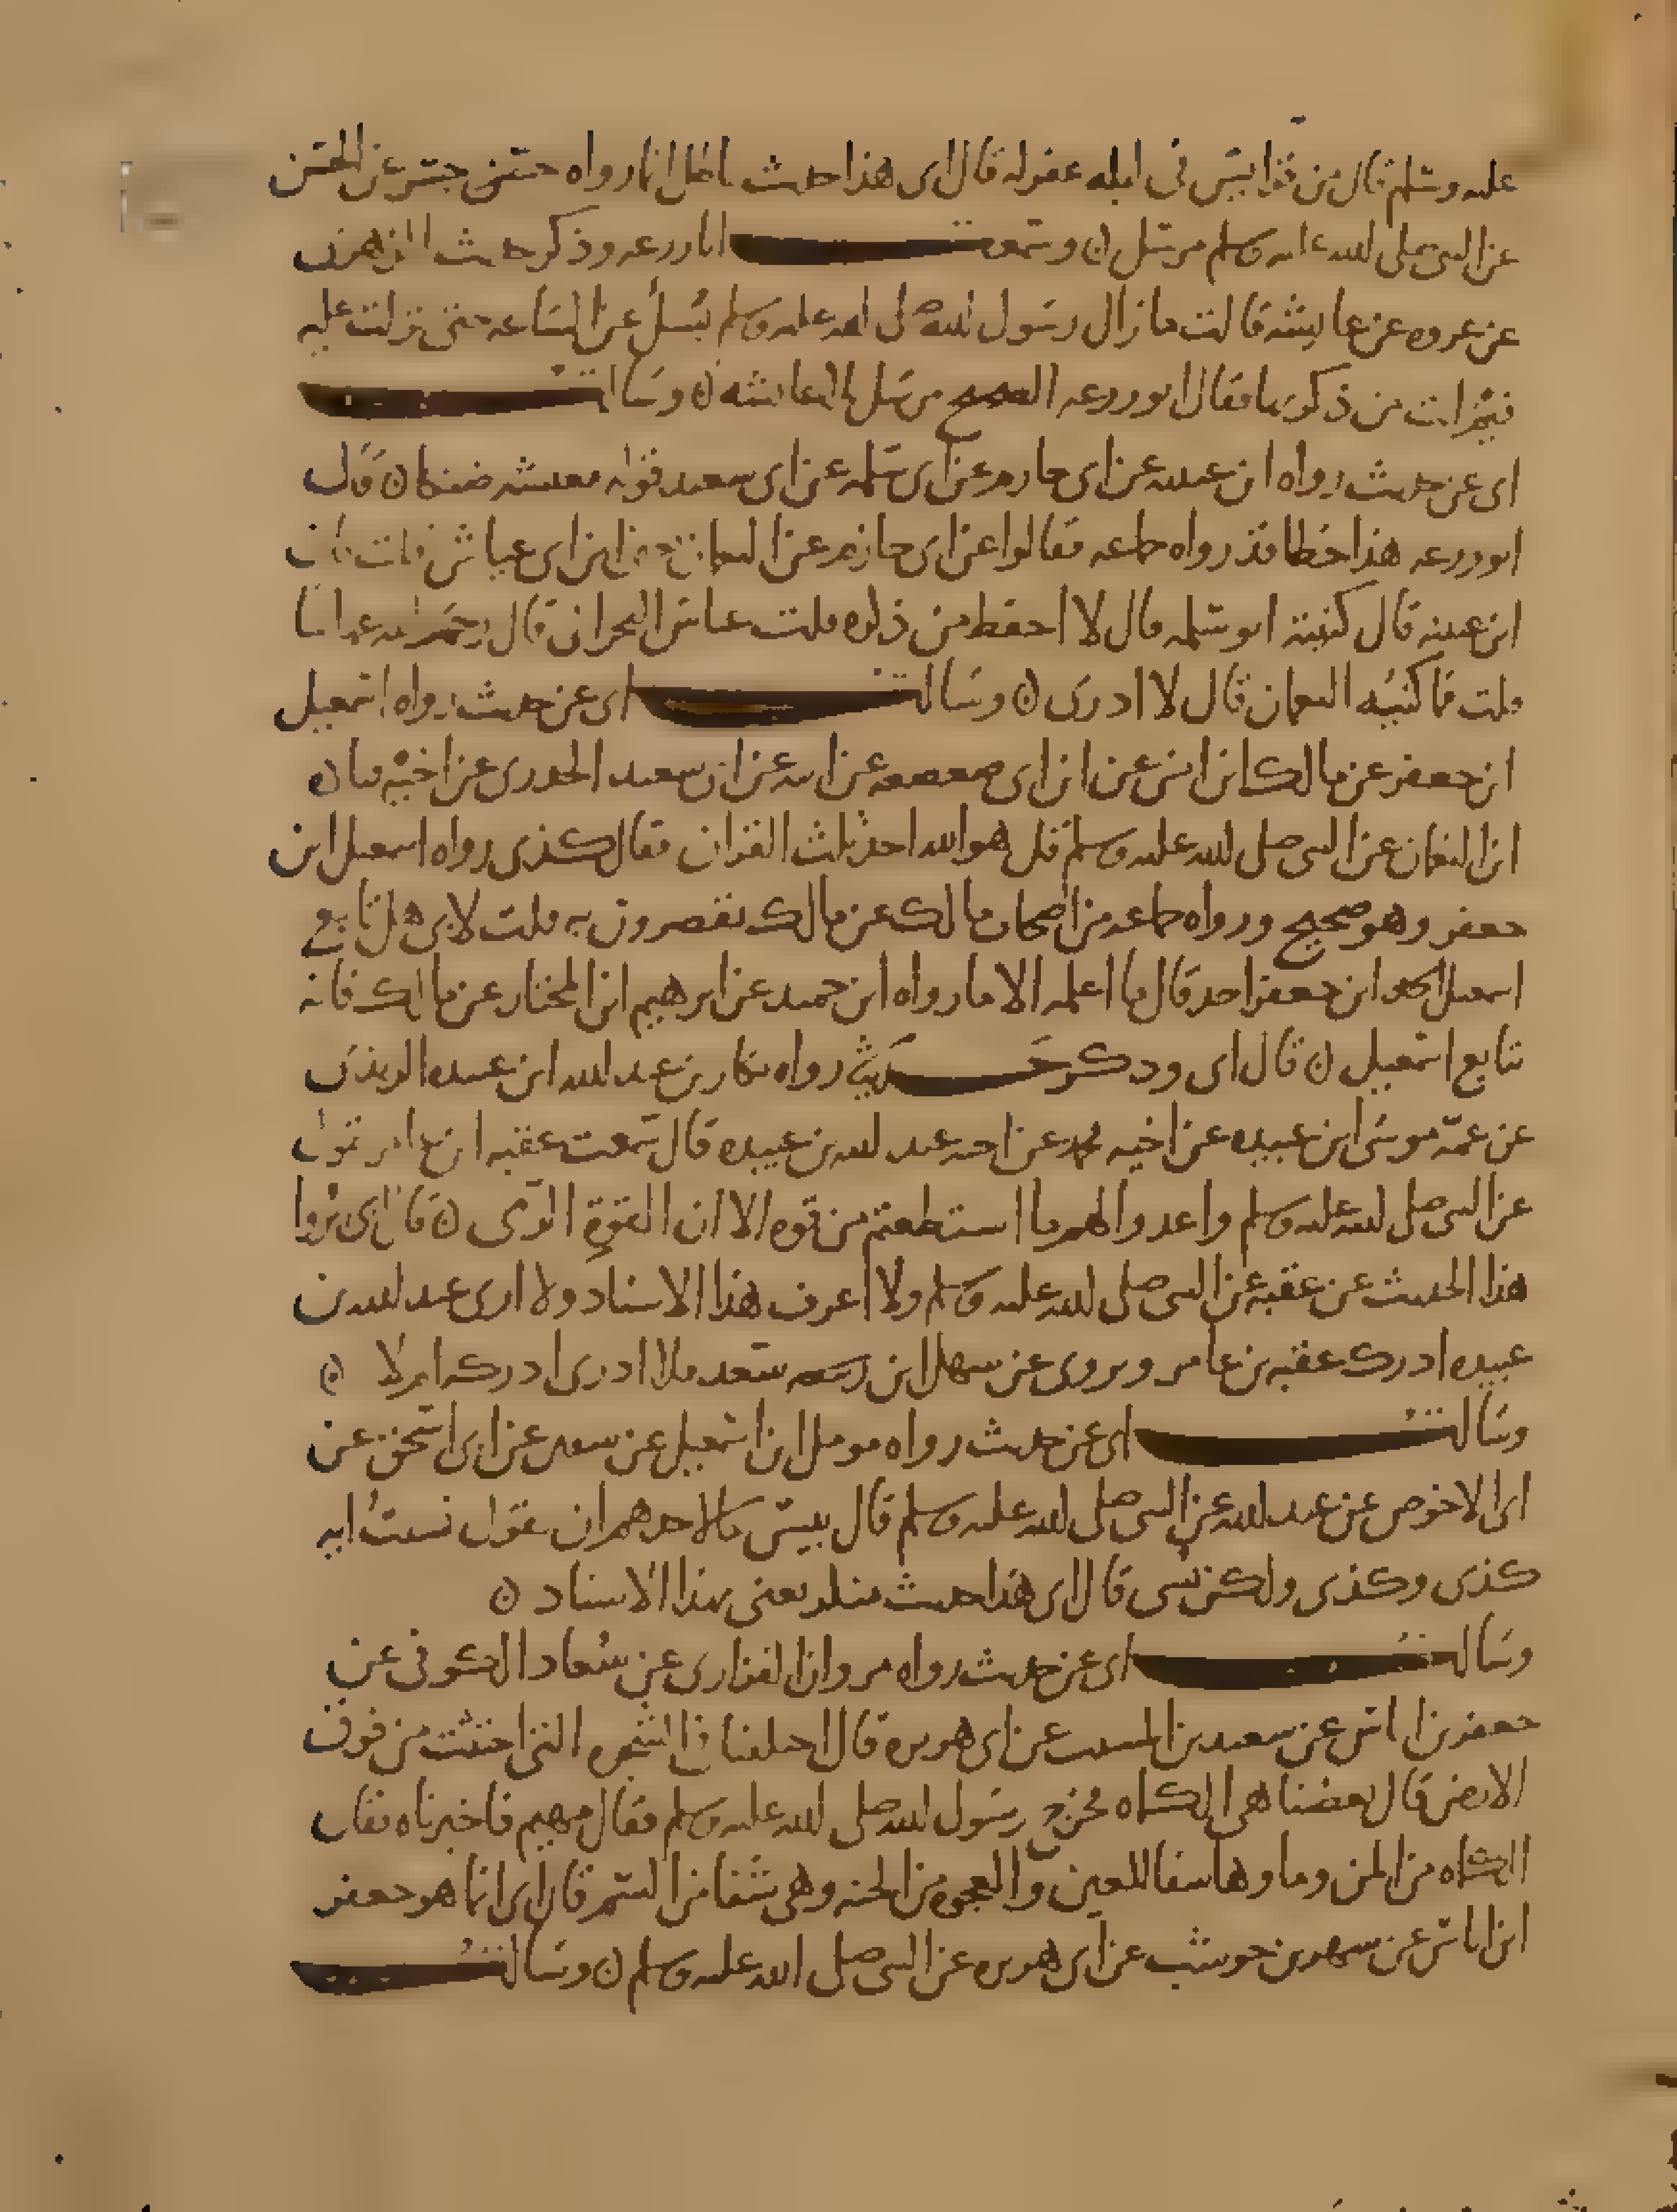 عليه وسلم قال من قرا يس في ليله غفر له قال ابي هذا حديث باطل انما رواه جسر عن الحسن
عن النبي صلى الله عليه وسلم مرسل ن وسمعت ابا زرعه وذكر حديث الزهري
عن عروه عن عايشه قالت ما زال رسول الله صلى الله عليه وسلم يسل عن الساعه حتى نزلت عليه
فيم انت من ذكريها فقال ابو زرعه الصحيح مرسل بلا عايشه ن وسالت
ابي عن حديث رواه ابن عيينه عن ابي حازم عن ابي سلمه عن ابي سعيد قوله معيشه ضنكا ن قال
ابو زرعه هذا خطا قد رواه جماعه فقالوا عن ابي حازم عن النعمان ابن ابي عياش قلت فان
ابن عيينه قال كنيته ابو سلمه قال لا احفظ من ذكره قلت عباس البحراني قال رحم الله عباسا
قلت ما كنيه النعمان قال لا ادري ن وسالت ابي عن حديث رواه اسمعيل
ابن جعفر عن مالك ابن انس عن ابن ابي صعصعه عن ابيه عن ابي سعيد الخدري عن اخيه قتاده
ابن النعمان عن النبي صلى الله عليه وسلم قل هو الله احد ثلث القران فقال كذى رواه اسمعيل ابن
جعفر وهو صحيح ورواه جماعه من اصحاب مالك عن مالك يقصرون به قلت لابي هل تابع
اسمعيل ابن جعفر احد قال ما اعلمه الا ما رواه ابن حميد عن ابرهيم ابن المختار عن مالك فانه
تابع اسمعيل ن قال ابي وذكر حديث رواه بكار بن عبد الله ابن عبيده الربذي
عن عمه موسى ابن عبيده عن اخيه محمد عن اخيه عبد الله بن عبيده قال سمعت عقبه ابن عامر يقول
عن النبي صلى الله عليه وسلم واعدوا لهم ما استطعتم من قوه الا ان القوة الرمي ن قال ابي يروا
هذا الحديث عن عقبه عن النبي صلى الله عليه وسلم ولا اعرف هذا الاسناد ولا ارى عبد الله بن
عبيده ادرك عقبه بن عامر ويروي عن سهل ابن سعد فلا ادري ادركه ام لا ن
وسالت ابي عن حديث رواه مومل ابن اسمعيل عن عن ابي اسحق عن
ابي الاحوص عن عبد الله عن النبي صلى الله عليه وسلم قال بيس ما لاحدهم ان يقول نسيت ايه
كذى وكذى ولكن نسي قال ابي هذا حديث منكر يعني بهذا الاسناد ن
وسالت ابي عن حديث رواه مروان الفزاري عن سعاد الكوفي عن
جعفر بن اياس عن سعيد بن المسيب عن ابي هريره قال اختلفنا في الشجره التي اجتثت من فوق
الارض قال بعضنا هي الكماه فخرج رسول الله صلى الله عليه وسلم فقال مهيم فاخبرناه فقال
الكماه من المن وماوها شفا للعين والعجوه من الجنه وهي شفا من السم قال ابي انما هو جعفر
ابن اياس عن شهر بن حوشب عن ابي هريره عن النبي صلى الله عليه وسلم ن وسالت